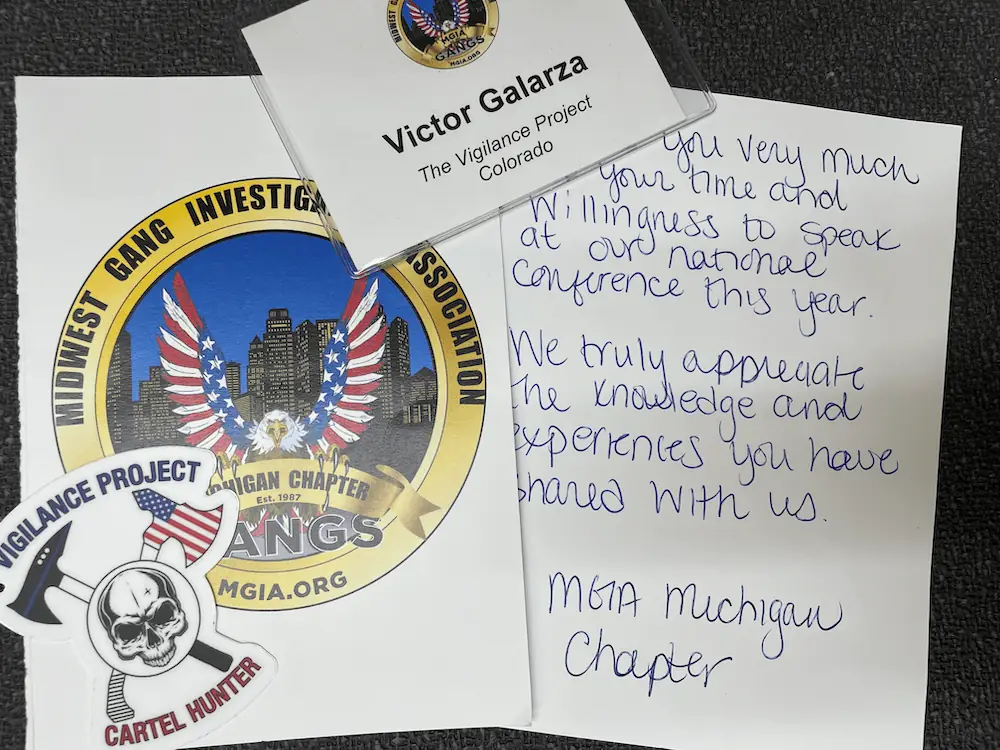 MIDWEST GANG
MGIA
GANGS
MGIA.ORG
Victor Galarza
The Vigilance Project
Colorado
MIDWEST GANG INVESTIGA
ASSOCIATION
HIGAN CHAPTER
Est. 1987
ANGS
MGIA.ORG
VIGILANCE PROJECT
CARTEL HUNTER
you very much
your time and
Willingness to speak
at our national
Conference this year.
We truly appreciate
the knowledge and
experiences you have
shared with us.
MGIA Michigan
Chapter